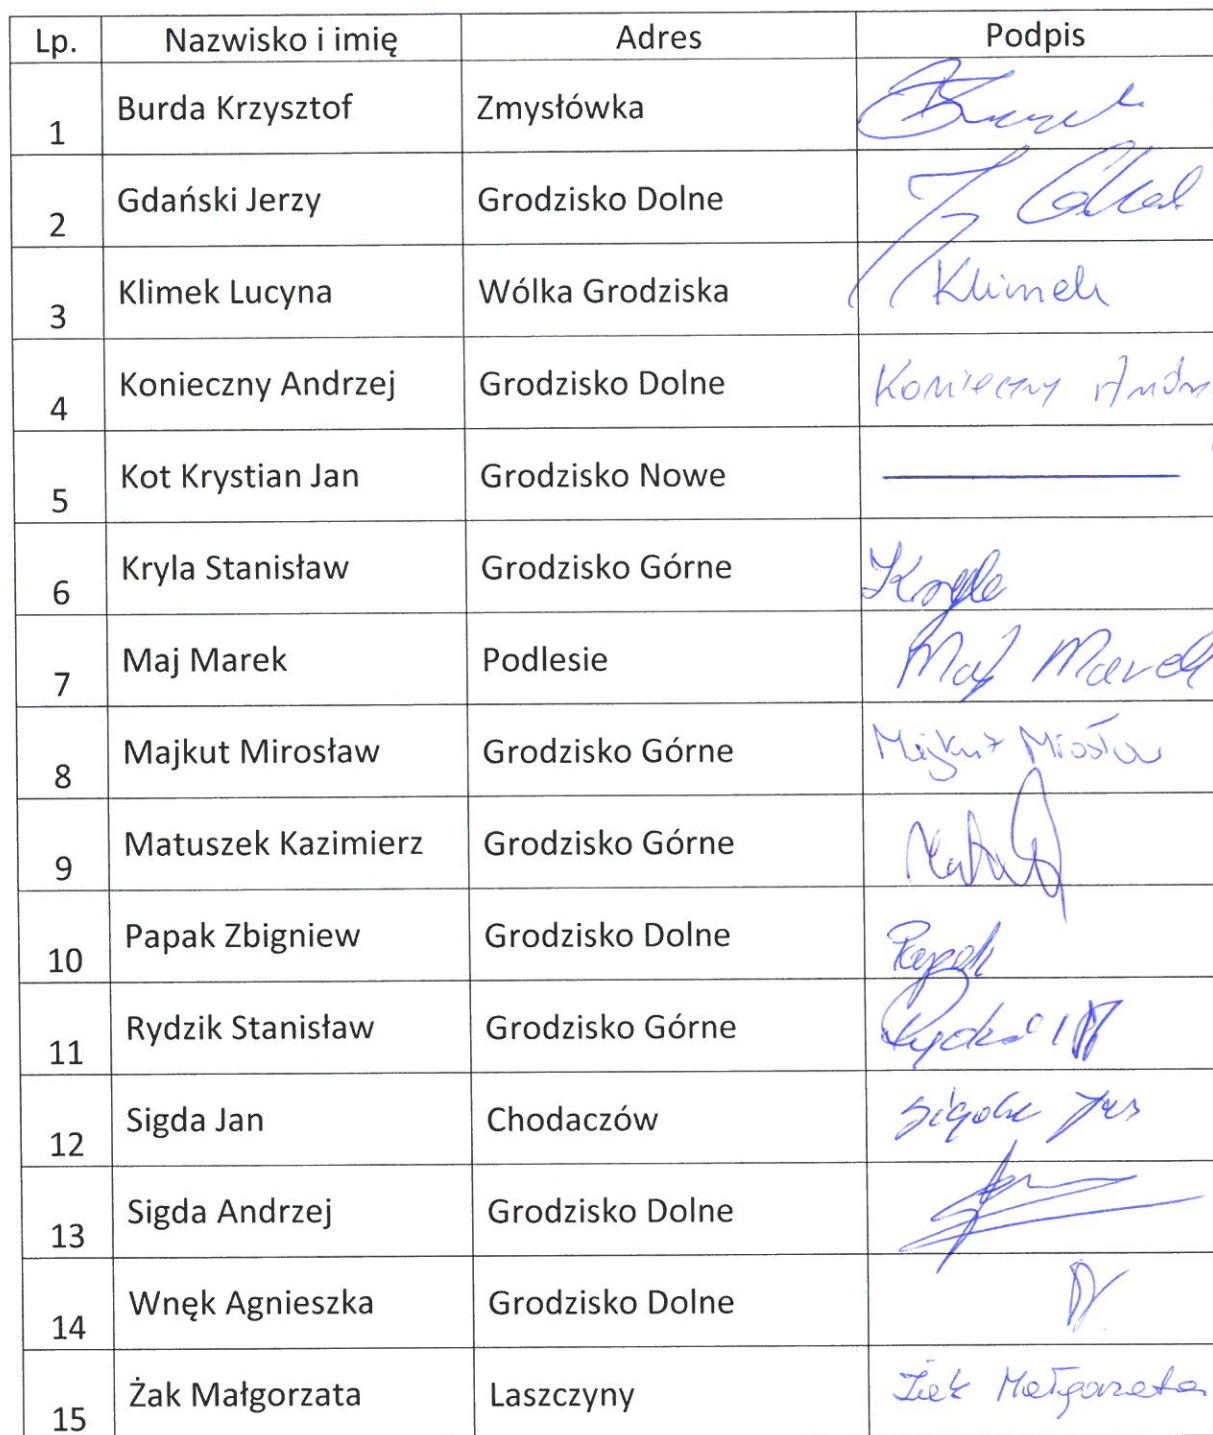 Lp. Nazwisko i imię Adres Podpis
1 Burda Krzysztof Zmysłówka
2 Gdański Jerzy Grodzisko Dolne
3 Klimek Lucyna Wólka Grodziska Klimek
4 Konieczny Andrzej Grodzisko Dolne Konieczny
5 Kot Krystian Jan Grodzisko Nowe
6 Kryla Stanisław Grodzisko Górne Kryla
7 Maj Marek Podlesie Maj Marek
8 Majkut Mirosław Grodzisko Górne Majkut
9 Matuszek Kazimierz Grodzisko Górne
10 Papak Zbigniew Grodzisko Dolne Papak
11 Rydzik Stanisław Grodzisko Górne
12 Sigda Jan Chodaczów Sigda Jan
13 Sigda Andrzej Grodzisko Dolne
14 Wnęk Agnieszka Grodzisko Dolne
15 Żak Małgorzata Laszczyny Żak Małgorzata